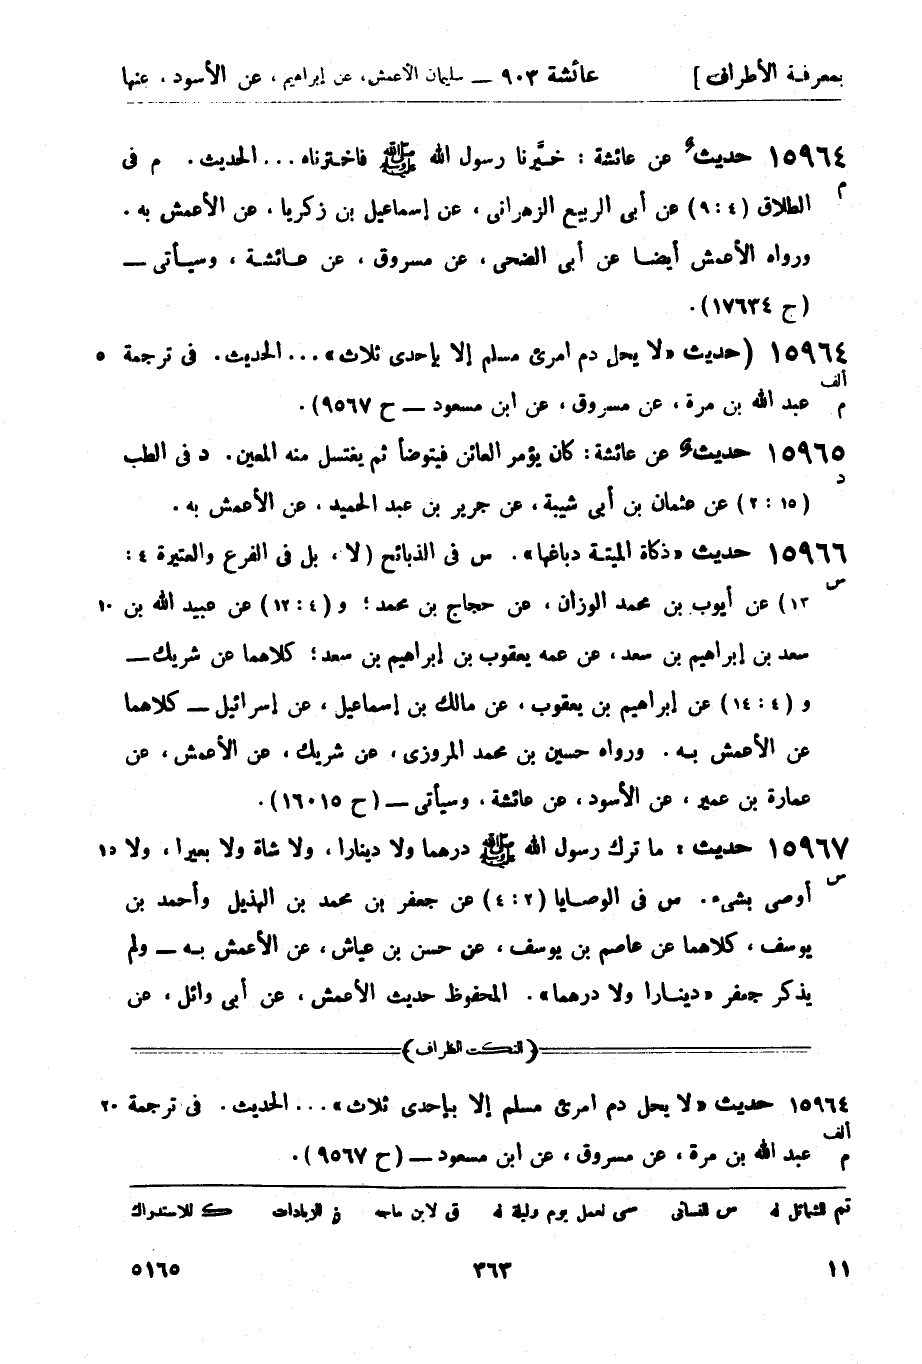 بمعرفة الأطراف ] عائشة ٩٠٣ — سليمان الأعمش، عن إبراهيم، عن الأسود، عنها
١٥٩٦٤ حديث عن عائشة : خيَّرنا رسول الله ﷺ فاخترناه ... الحديث. م فى
م الطلاق (٤ : ٩) عن أبى الربيع الزهرانى، عن إسماعيل بن زكريا، عن الأعمش به.
ورواه الأعمش أيضا عن أبى الضحى، عن مسروق، عن عائشة، وسيأتى —
(ح ١٧٦٣٤).
١٥٩٦٤ (حديث «لا يحل دم امرئ مسلم إلا بإحدى ثلاث» ... الحديث. فى ترجمة ٥
ألف
م عبد الله بن مرة، عن مسروق، عن ابن مسعود — ح ٩٥٦٧).
١٥٩٦٥ حديث عن عائشة : كان يؤمر العائن فيتوضأ ثم يغتسل منه المعين. د فى الطب
د (١٥ : ٢) عن عثمان بن أبى شيبة، عن جرير بن عبد الحميد، عن الأعمش به.
١٥٩٦٦ حديث «ذكاة الميتة دباغها». س فى الذبائح (لا، بل فى الفرع والعتيرة ٤ :
س ١٣) عن أيوب بن محمد الوزان، عن حجاج بن محمد؛ و (٤ : ١٢) عن عبيد الله بن ١٠
سعد بن إبراهيم بن سعد، عن عمه يعقوب بن إبراهيم بن سعد؛ كلاهما عن شريك —
و (٤ : ١٤) عن إبراهيم بن يعقوب، عن مالك بن إسماعيل، عن إسرائيل — كلاهما
عن الأعمش به. ورواه حسين بن محمد المروزى، عن شريك، عن الأعمش، عن
عمارة بن عمير، عن الأسود، عن عائشة، وسيأتى — (ح ١٦٠١٥).
١٥٩٦٧ حديث : ما ترك رسول الله ﷺ درهما ولا دينارا، ولا شاة ولا بعيرا، ولا ١٥
س أوصى بشىء. س فى الوصايا (٢ : ٤) عن جعفر بن محمد بن الهذيل وأحمد بن
يوسف، كلاهما عن عاصم بن يوسف، عن حسن بن عياش، عن الأعمش به — ولم
يذكر جعفر «دينارا ولا درهما». المحفوظ حديث الأعمش، عن أبى وائل، عن
(النكت الظراف)
١٥٩٦٤ حديث «لا يحل دم امرئ مسلم إلا بإحدى ثلاث» ... الحديث. فى ترجمة ٢٠
ألف
م عبد الله بن مرة، عن مسروق، عن ابن مسعود — (ح ٩٥٦٧).
تم الشمائل له س النسائى سى لعمل يوم وليلة له ق لابن ماجه ز الزيادات ك للاستدراك
١١ ٣٦٣ ٥١٦٥